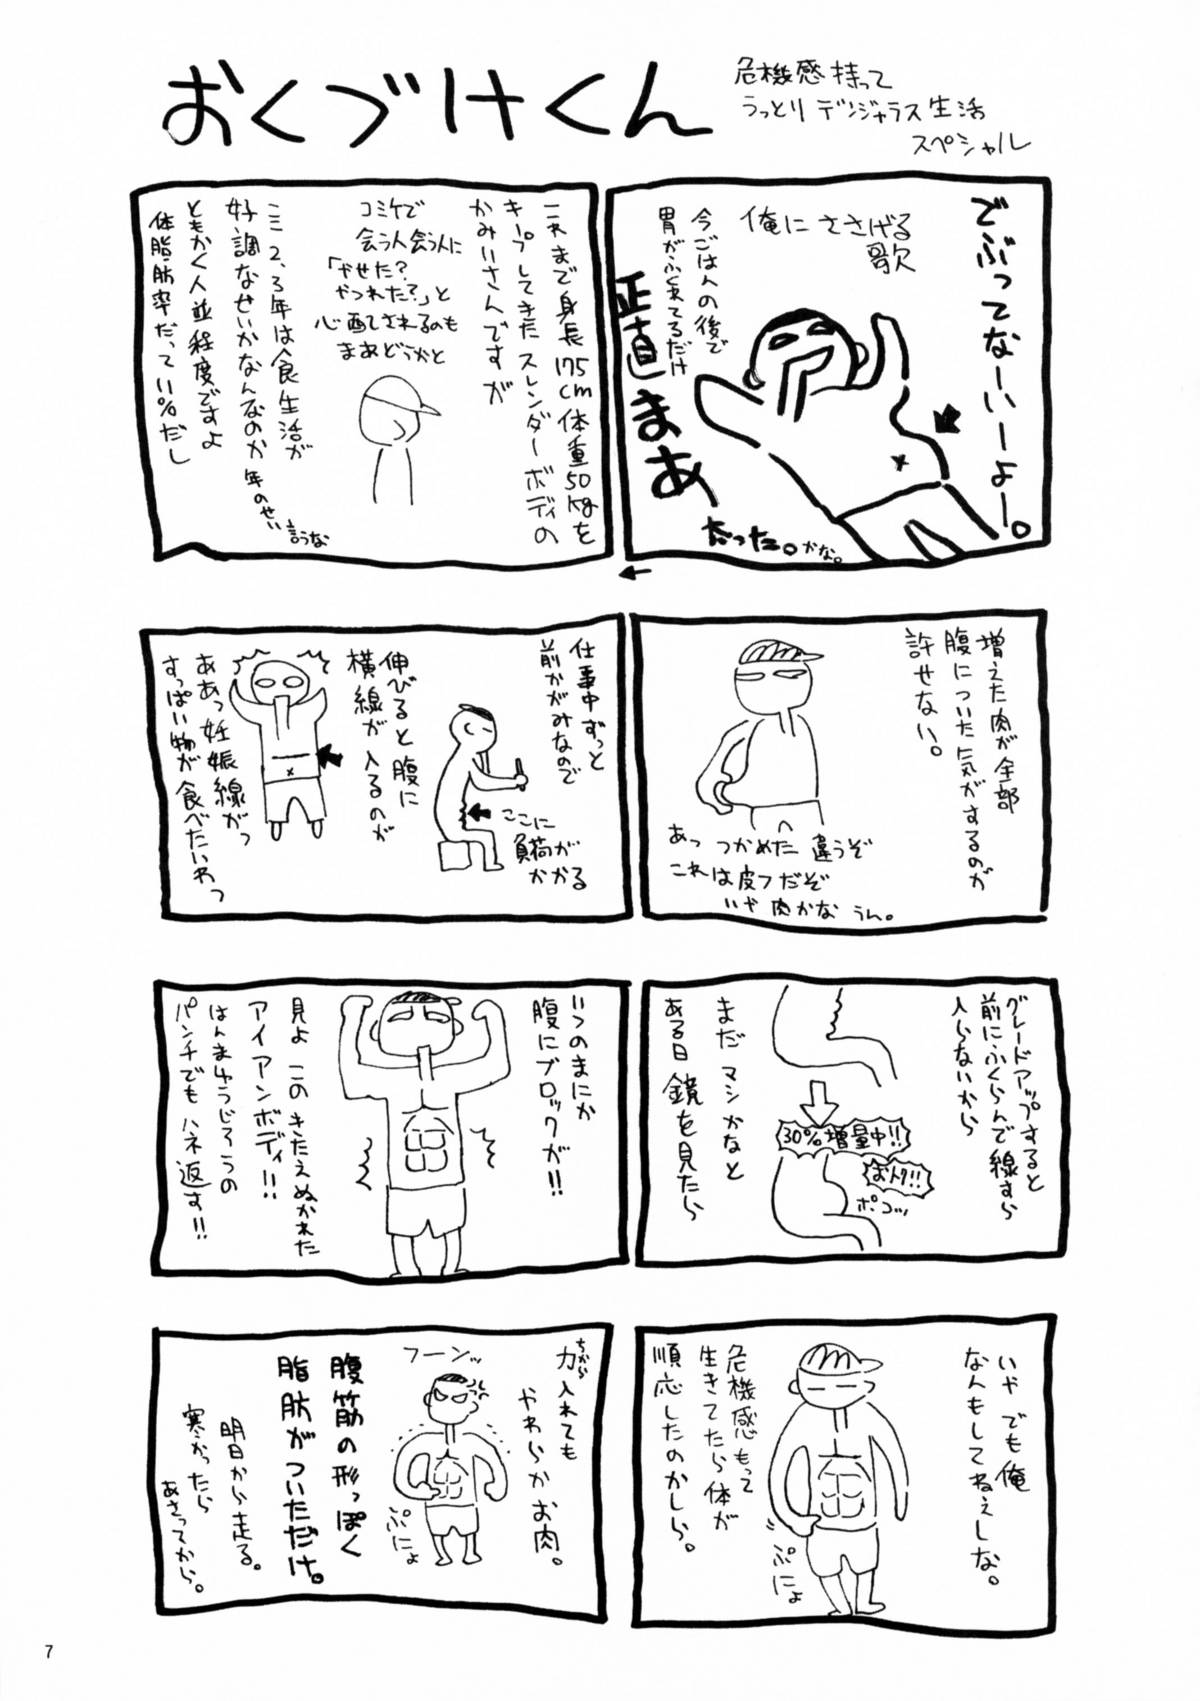 おくづけくん
危機感持って
うっとりデンジャラス生活
スペシャル
でぶってなーいーよー。
俺にささげる
歌
今ごはんの後で
胃がふくれてるだけ
正直まあ
太った。かな。
これまで身長175cm体重50kgを
キープしてきたスレンダーボディの
かみいさんですが
コミケで
会う人会う人に
「やせた?
やつれた?」と
心配されるのも
まあどうかと
ここ2、3年は食生活が
好調なせいかなんなのか年のせい
言うな
ともかく人並程度ですよ
体脂肪率だって11%だし
増えた肉が全部
腹についた気がするのが
許せない。
あっ つかめた 違うぞ
これは皮フだぞ
いや 肉かな うん。
仕事中ずっと
前かがみなので
ここに
負荷が
かかる
伸びると腹に
横線が入るのが
ああっ妊娠線がっ
すっぱい物が食べたいわっ
グレードアップすると
前にふくらんで線すら
入らないから
30%増量中!!
おトク!!
ポコッ
まだマシかなと
ある日鏡を見たら
いつのまにか
腹にブロックが!!
見よ このきたえぬかれた
アイアンボディ!!
はんまゆうじろうの
パンチでもハネ返す!!
いや でも俺
なんもしてねぇしな。
危機感もって
生きてたら体が
順応したのかしら。
ぷにょ
力入れても
ちから
やわらかお肉。
フーンッ
ぷにょ
腹筋の形っぽく
脂肪がついただけ。
明日から走る。
寒かったら
あさってから。
7